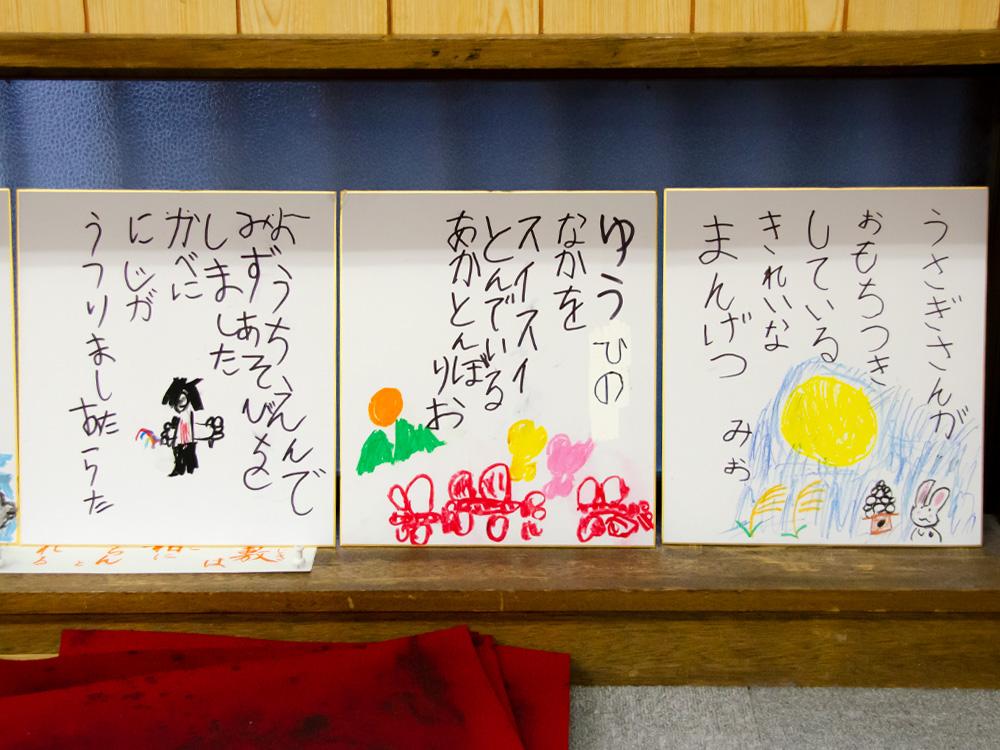 うさぎさんが
おもちつき
している
きれいな
まんげつ
みお
ゆうひの
なかを
スイスイ
とんでいる
あかとんぼ
りお
ようちえんで
みずあそびを
しました
かべに
にじが
うつりました
あらた